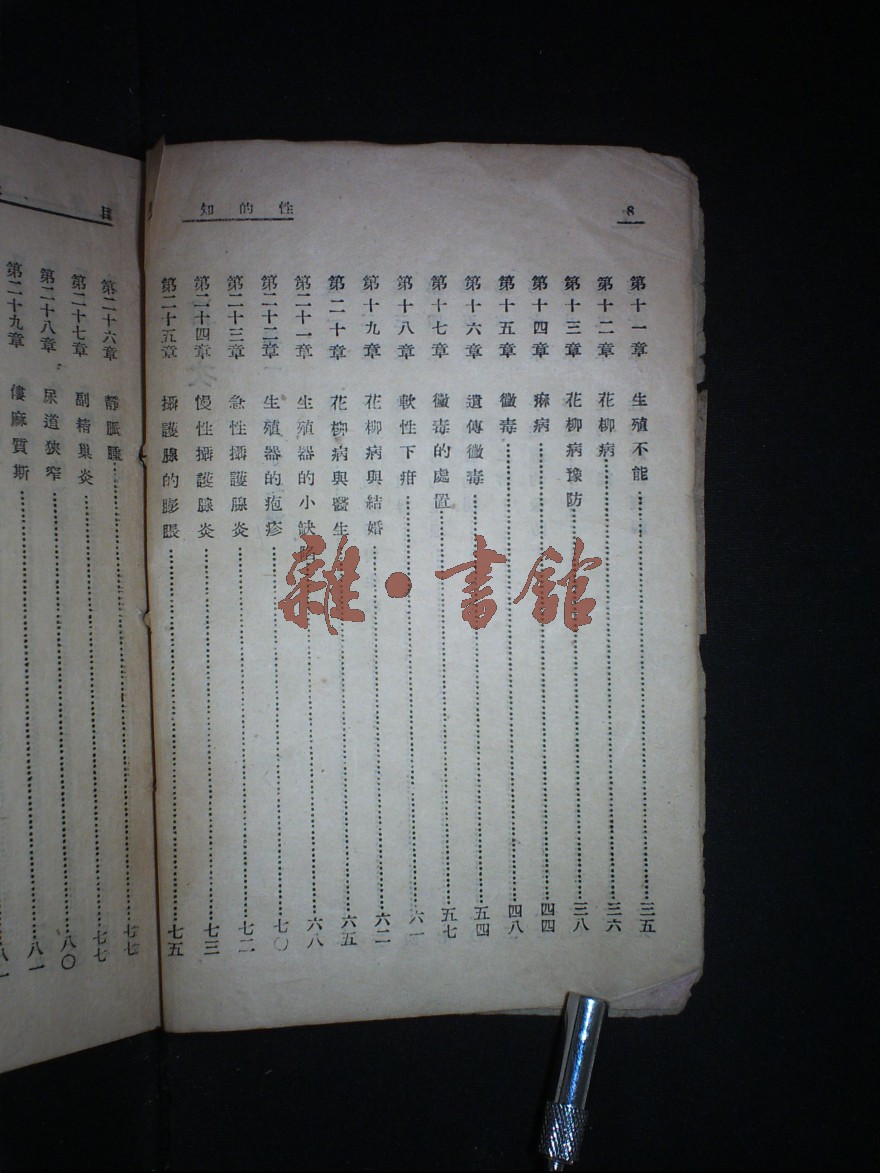 8
性的知
第十一章 生殖不能⋯⋯三五
第十二章 花柳病⋯⋯三六
第十三章 花柳病豫防⋯⋯三八
第十四章 痳病⋯⋯四四
第十五章 黴毒⋯⋯四八
第十六章 遺傳黴毒⋯⋯五四
第十七章 黴毒的處置⋯⋯五七
第十八章 軟性下疳⋯⋯六一
第十九章 花柳病與結婚⋯⋯六二
第二十章 花柳病與醫生⋯⋯六五
第二十一章 生殖器的小缺⋯⋯六八
第二十二章 生殖器的疱疹⋯⋯七〇
第二十三章 急性攝護腺炎⋯⋯七二
第二十四章 慢性攝護腺炎⋯⋯七三
第二十五章 攝護腺的膨脹⋯⋯七五
目
第二十六章 靜脈腫⋯⋯七七
第二十七章 副精巢炎⋯⋯七七
第二十八章 尿道狹窄⋯⋯八〇
第二十九章 僂麻質斯⋯⋯八一
雜·書館